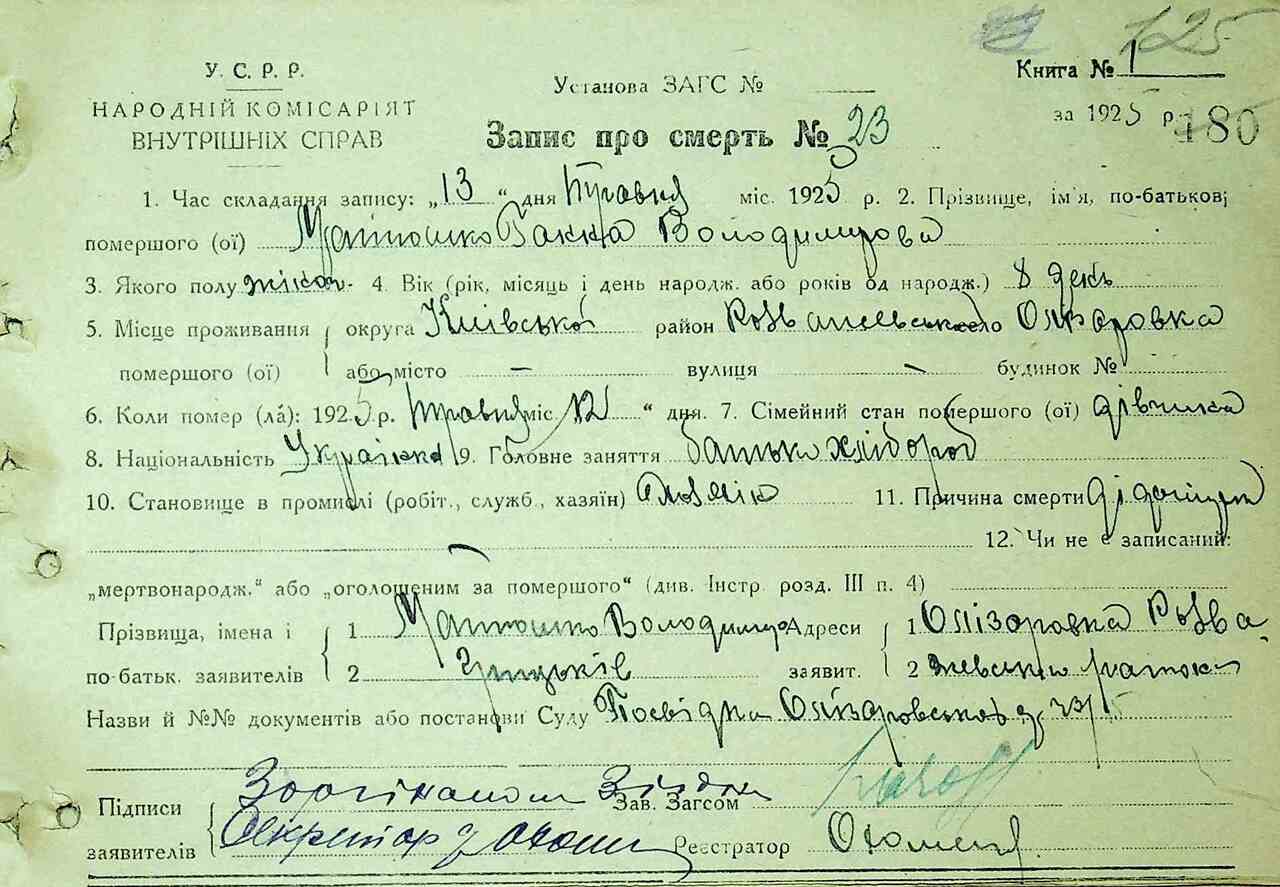 125
У. С. Р. Р.
НАРОДНІЙ КОМІСАРІЯТ
ВНУТРІШНІХ СПРАВ
Установа ЗАГС №
Книга № 1
за 1925 р. 180
Запис про смерть № 23
1. Час складання запису: „13 “ дня Травня міс. 1925 р. 2. Прізвище, ім'я, по-батькові
помершого (ої) Матюшко Ганна Володимирова
3. Якого полу жіноч. 4. Вік (рік, місяць і день народж. або років од народж.) 8 день
5. Місце проживання округа Київської район Розважевського Олізаровка
помершого (ої) або місто — вулиця — будинок №
6. Коли помер (ла): 1925 р. Травня міс. 12 “ дня. 7. Сімейний стан помершого (ої) дівчинка
8. Національність Українка 9. Головне заняття батько хлібороб
10. Становище в промислі (робіт., служб., хазяїн) 11. Причина смерти
12. Чи не є записаний:
„мертвонародж.“ або „оголошеним за помершого“ (див. Інстр. розд. III п. 4)
Прізвища, імена і 1 Матюшко Володимир Адреси 1 Олізаровка Розва-
по-батьк. заявителів 2 Грицьків заявит. 2 жевський
Назви й №№ документів або постанови Суду Посвідка
Підписи Зав. Загсом
заявителів Секретар Реєстратор